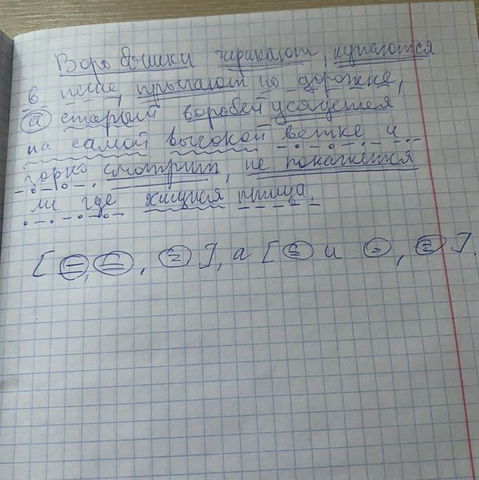 Воробышки чирикают, купаются
в песке, прыгают по дорожке,
а старый воробей усядется
на самой высокой ветке и
зорко смотрит, не покажется
ли где хищная птица.
[=, =, =], а [= и =, =].